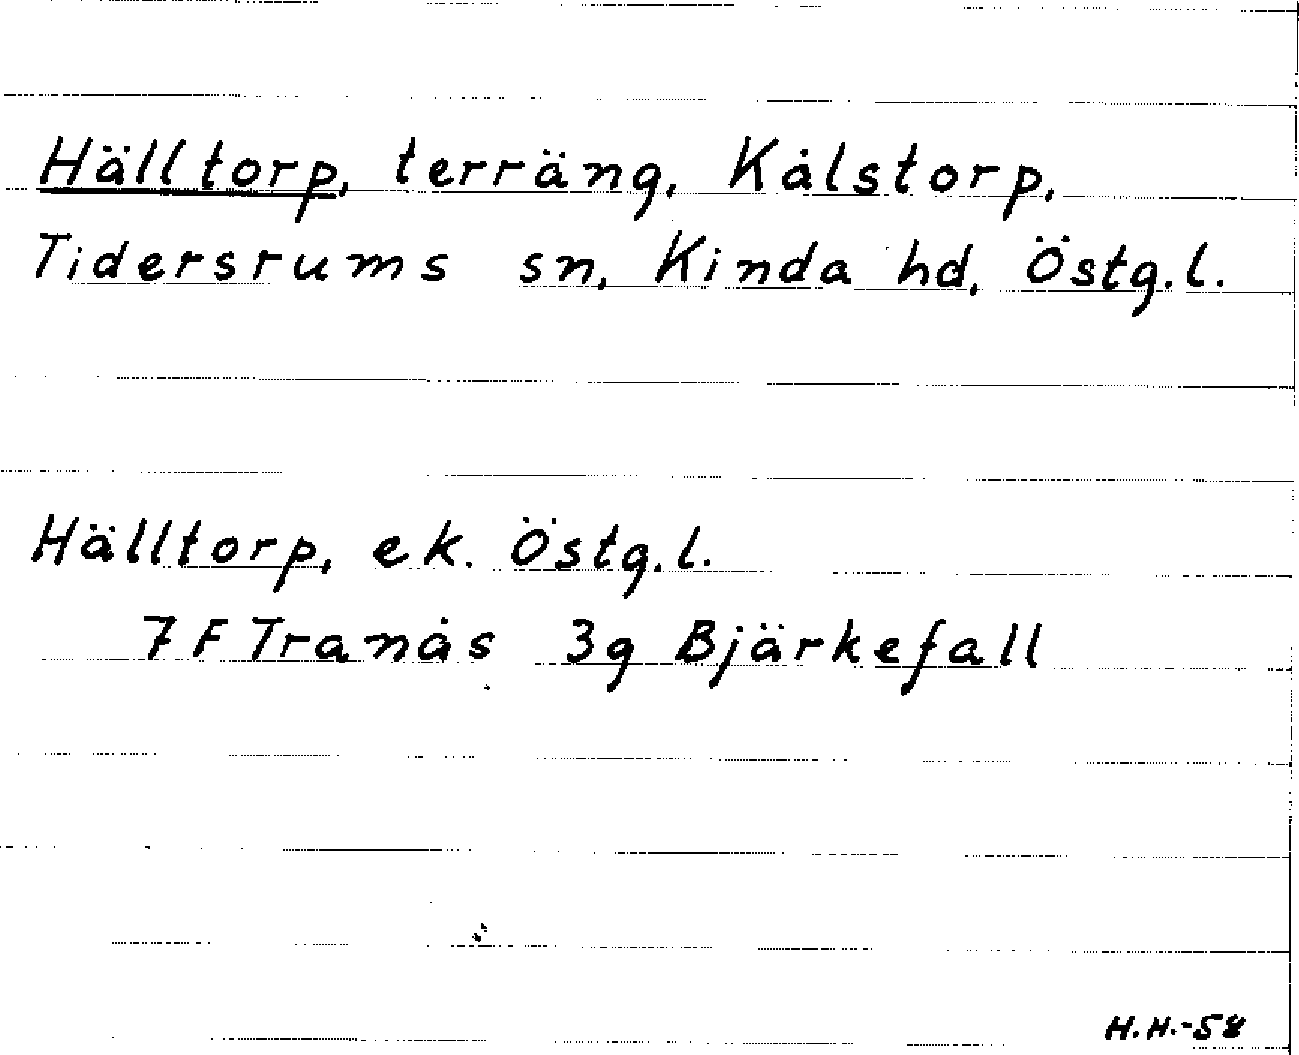 Hälltorp, terräng, Kålstorp,
Tidersrums sn, Kinda hd, Östg.l.
Hälltorp, ek. Östg.l.
7 F Tranås 3g Bjärkefall
H.H.-58